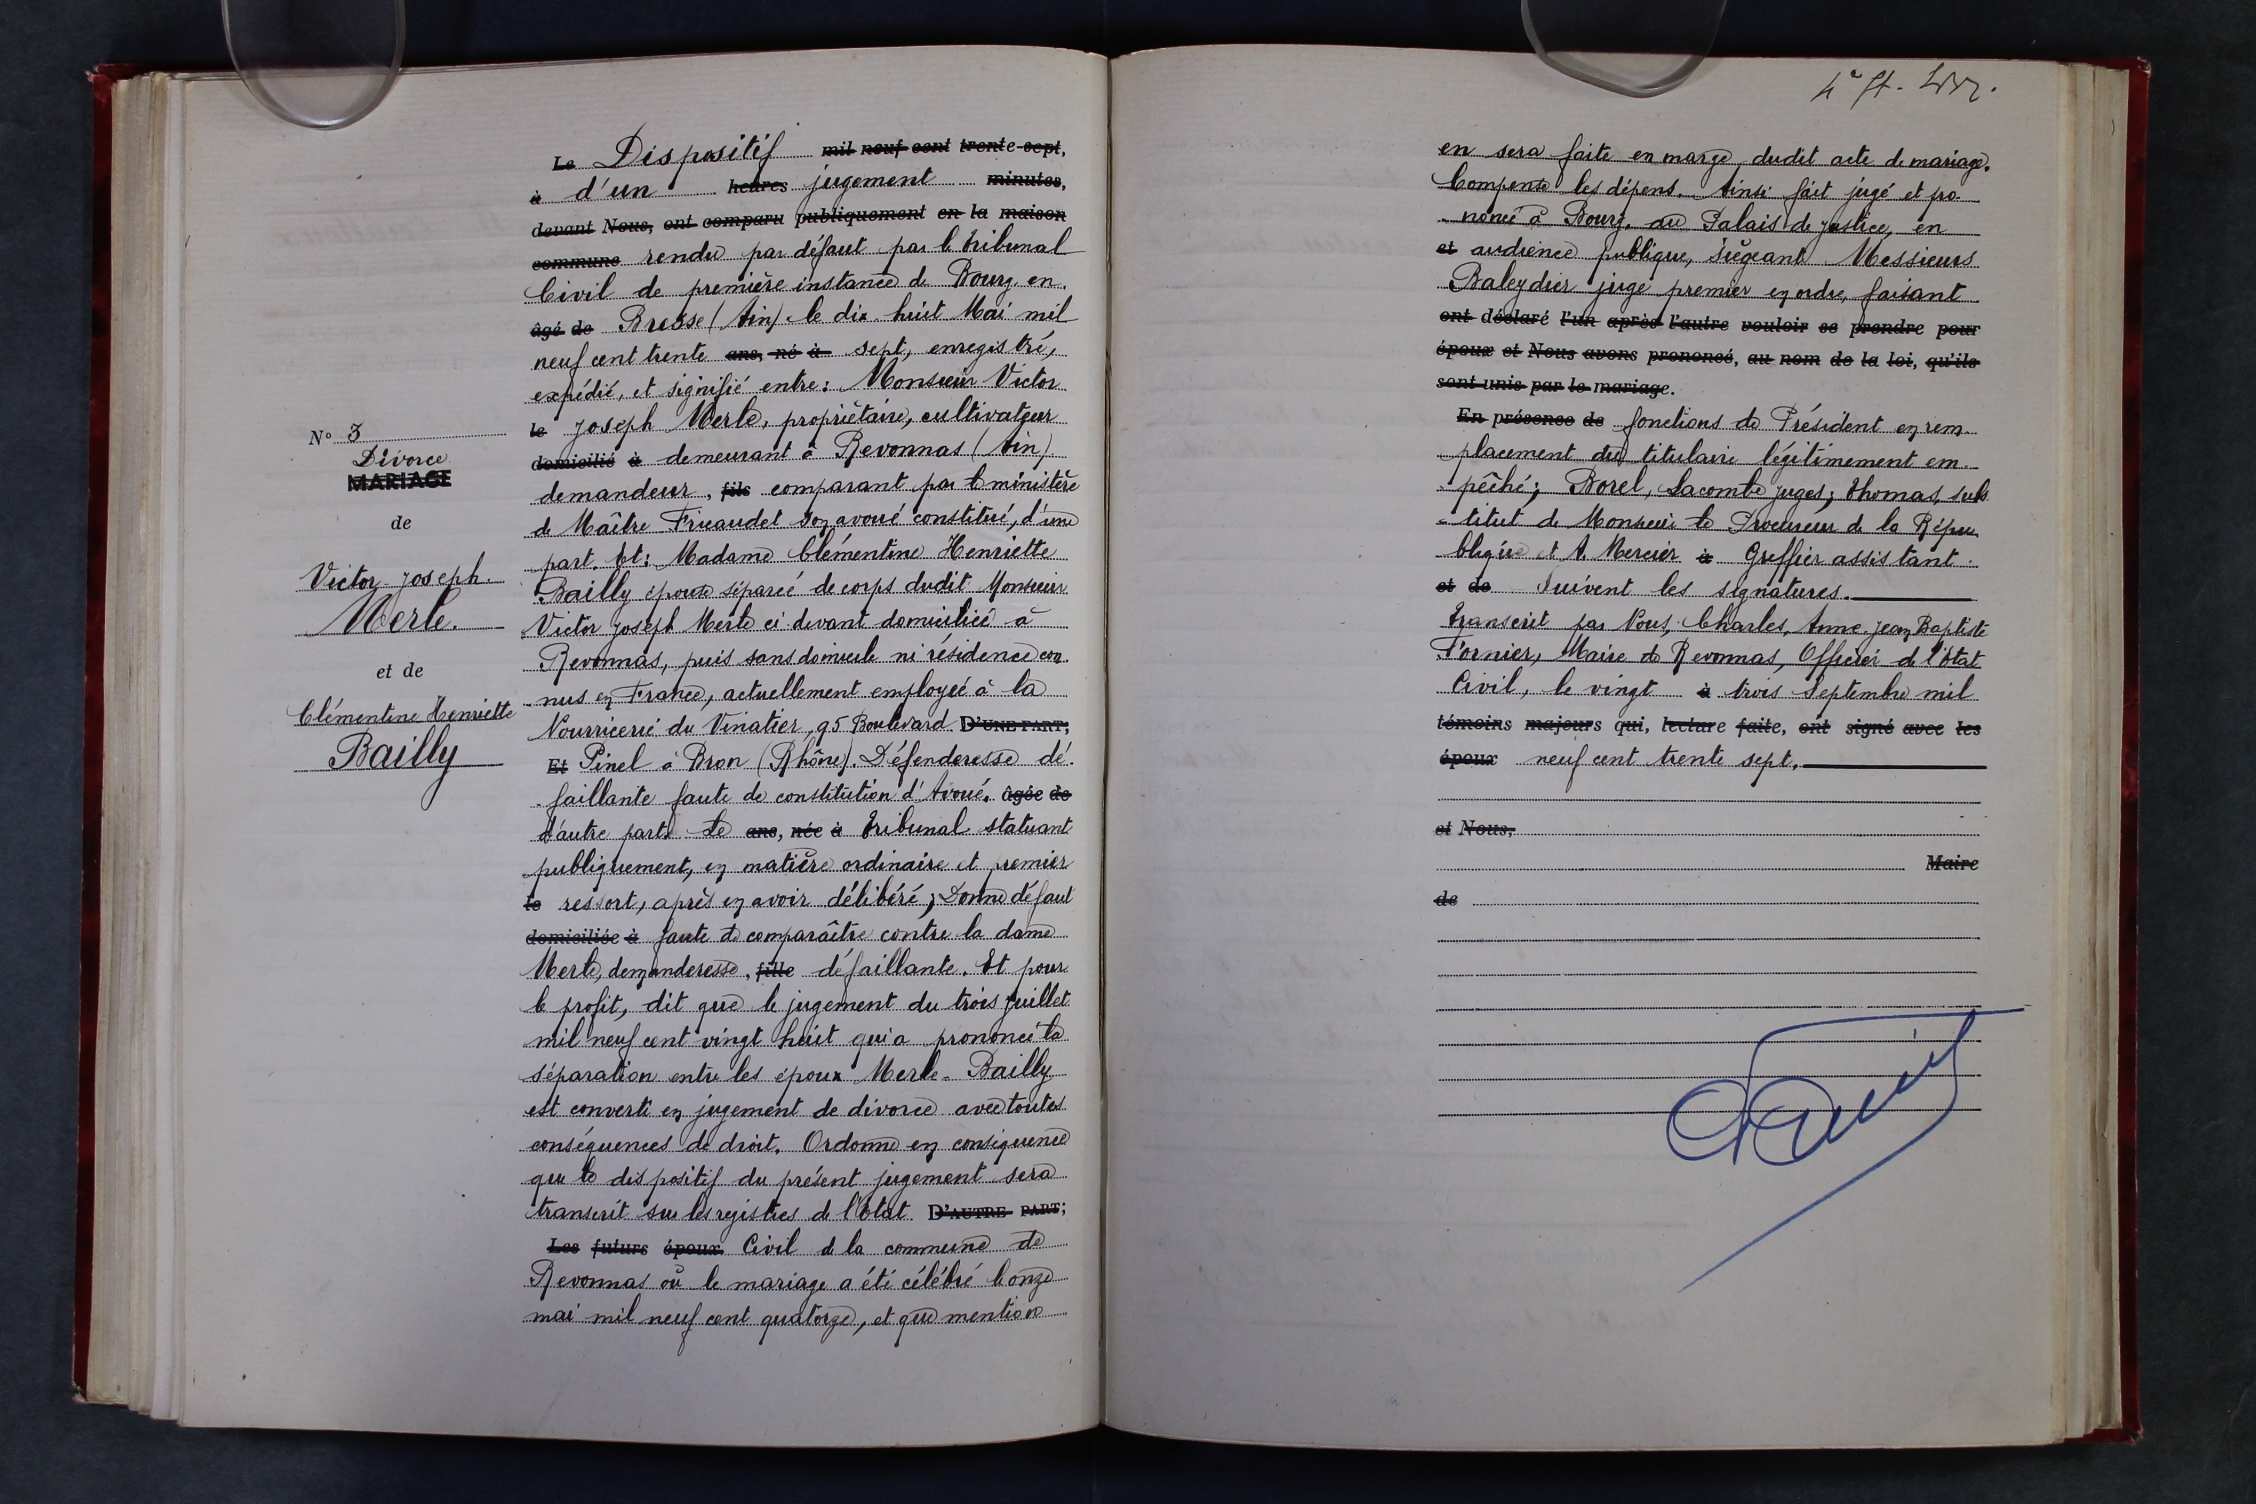 N° 3
Divorce
MARIAGE
de
Victor Joseph
Merle.
et de
Clémentine Henriette
Bailly
Le Dispositif mil neuf cent trente-sept,
à d'un heures jugement minutes,
devant Nous, ont comparu publiquement en la maison
commune rendu par défaut par le tribunal
Civil de première instance de Bourg en
âgé de Bresse (Ain) le dix huit Mai mil
neuf cent trente ans, né à sept, enregistré,
expédié, et signifié entre : Monsieur Victor
le Joseph Merle, propriétaire, cultivateur
domicilié à demeurant à Revonnas (Ain)
demandeur, fils comparant par le ministère
de Maître Fricaudet son avoué constitué, d'une
part. Et : Madame Clémentine Henriette
Bailly épouse séparée de corps dudit Monsieur
Victor Joseph Merle ci devant domiciliée à
Revonnas, puis sans domicile ni résidence con
nus en France, actuellement employée à la
Nourricerie du Vinatier, 95 Boulevard D'UNE PART;
Et Pinel à Bron (Rhône). Défenderesse dé
faillante faute de constitution d'Avoué. âgée de
d'autre part. Le ans, née à Tribunal statuant
publiquement, en matière ordinaire et premier
le ressort, après en avoir délibéré ; Donne défaut
domiciliée à faute de comparaître contre la dame
Merle, demanderesse, fille défaillante. Et pour
le profit, dit que le jugement du trois Juillet
mil neuf cent vingt huit qui a prononcé la
séparation entre les époux Merle-Bailly
est converti en jugement de divorce avec toutes
conséquences de droit. Ordonne en conséquence
que le dispositif du présent jugement sera
transcrit sur les registres de l'Etat D'AUTRE PART;
Les futurs époux Civil de la commune de
Revonnas où le mariage a été célébré le onze
mai mil neuf cent quatorze, et que mention
en sera faite en marge dudit acte de mariage.
Compense les dépens. Ainsi fait jugé et pro
noncé à Bourg, au Palais de Justice, en
et audience publique, siègeant Messieurs
Baleydier juge premier en ordre, faisant
ont déclaré l'un après l'autre vouloir se prendre pour
époux et Nous avons prononcé, au nom de la loi, qu'ils
sont unis par le mariage.
En présence de fonctions de Président en rem
placement du titulaire légitimement em
pêché ; Borel, Lacombe juges ; Thomas, subs
titut de Monsieur le Procureur de la Répu
blique et A. Mercier à Greffier assistant.
et de Suivent les signatures.
Transcrit par Nous, Charles, Anne, Jean Baptiste
Fornier, Maire de Revonnas, Officier de l'état
Civil, le vingt à trois Septembre mil
témoins majeurs qui, lecture faite, ont signé avec les
époux neuf cent trente sept.
et Nous,
Maire
de